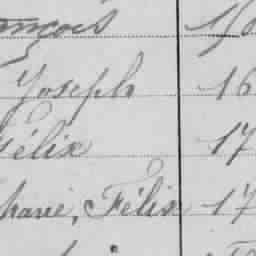 ançois
Joseph 16
Félix 17
harie, Félix 17